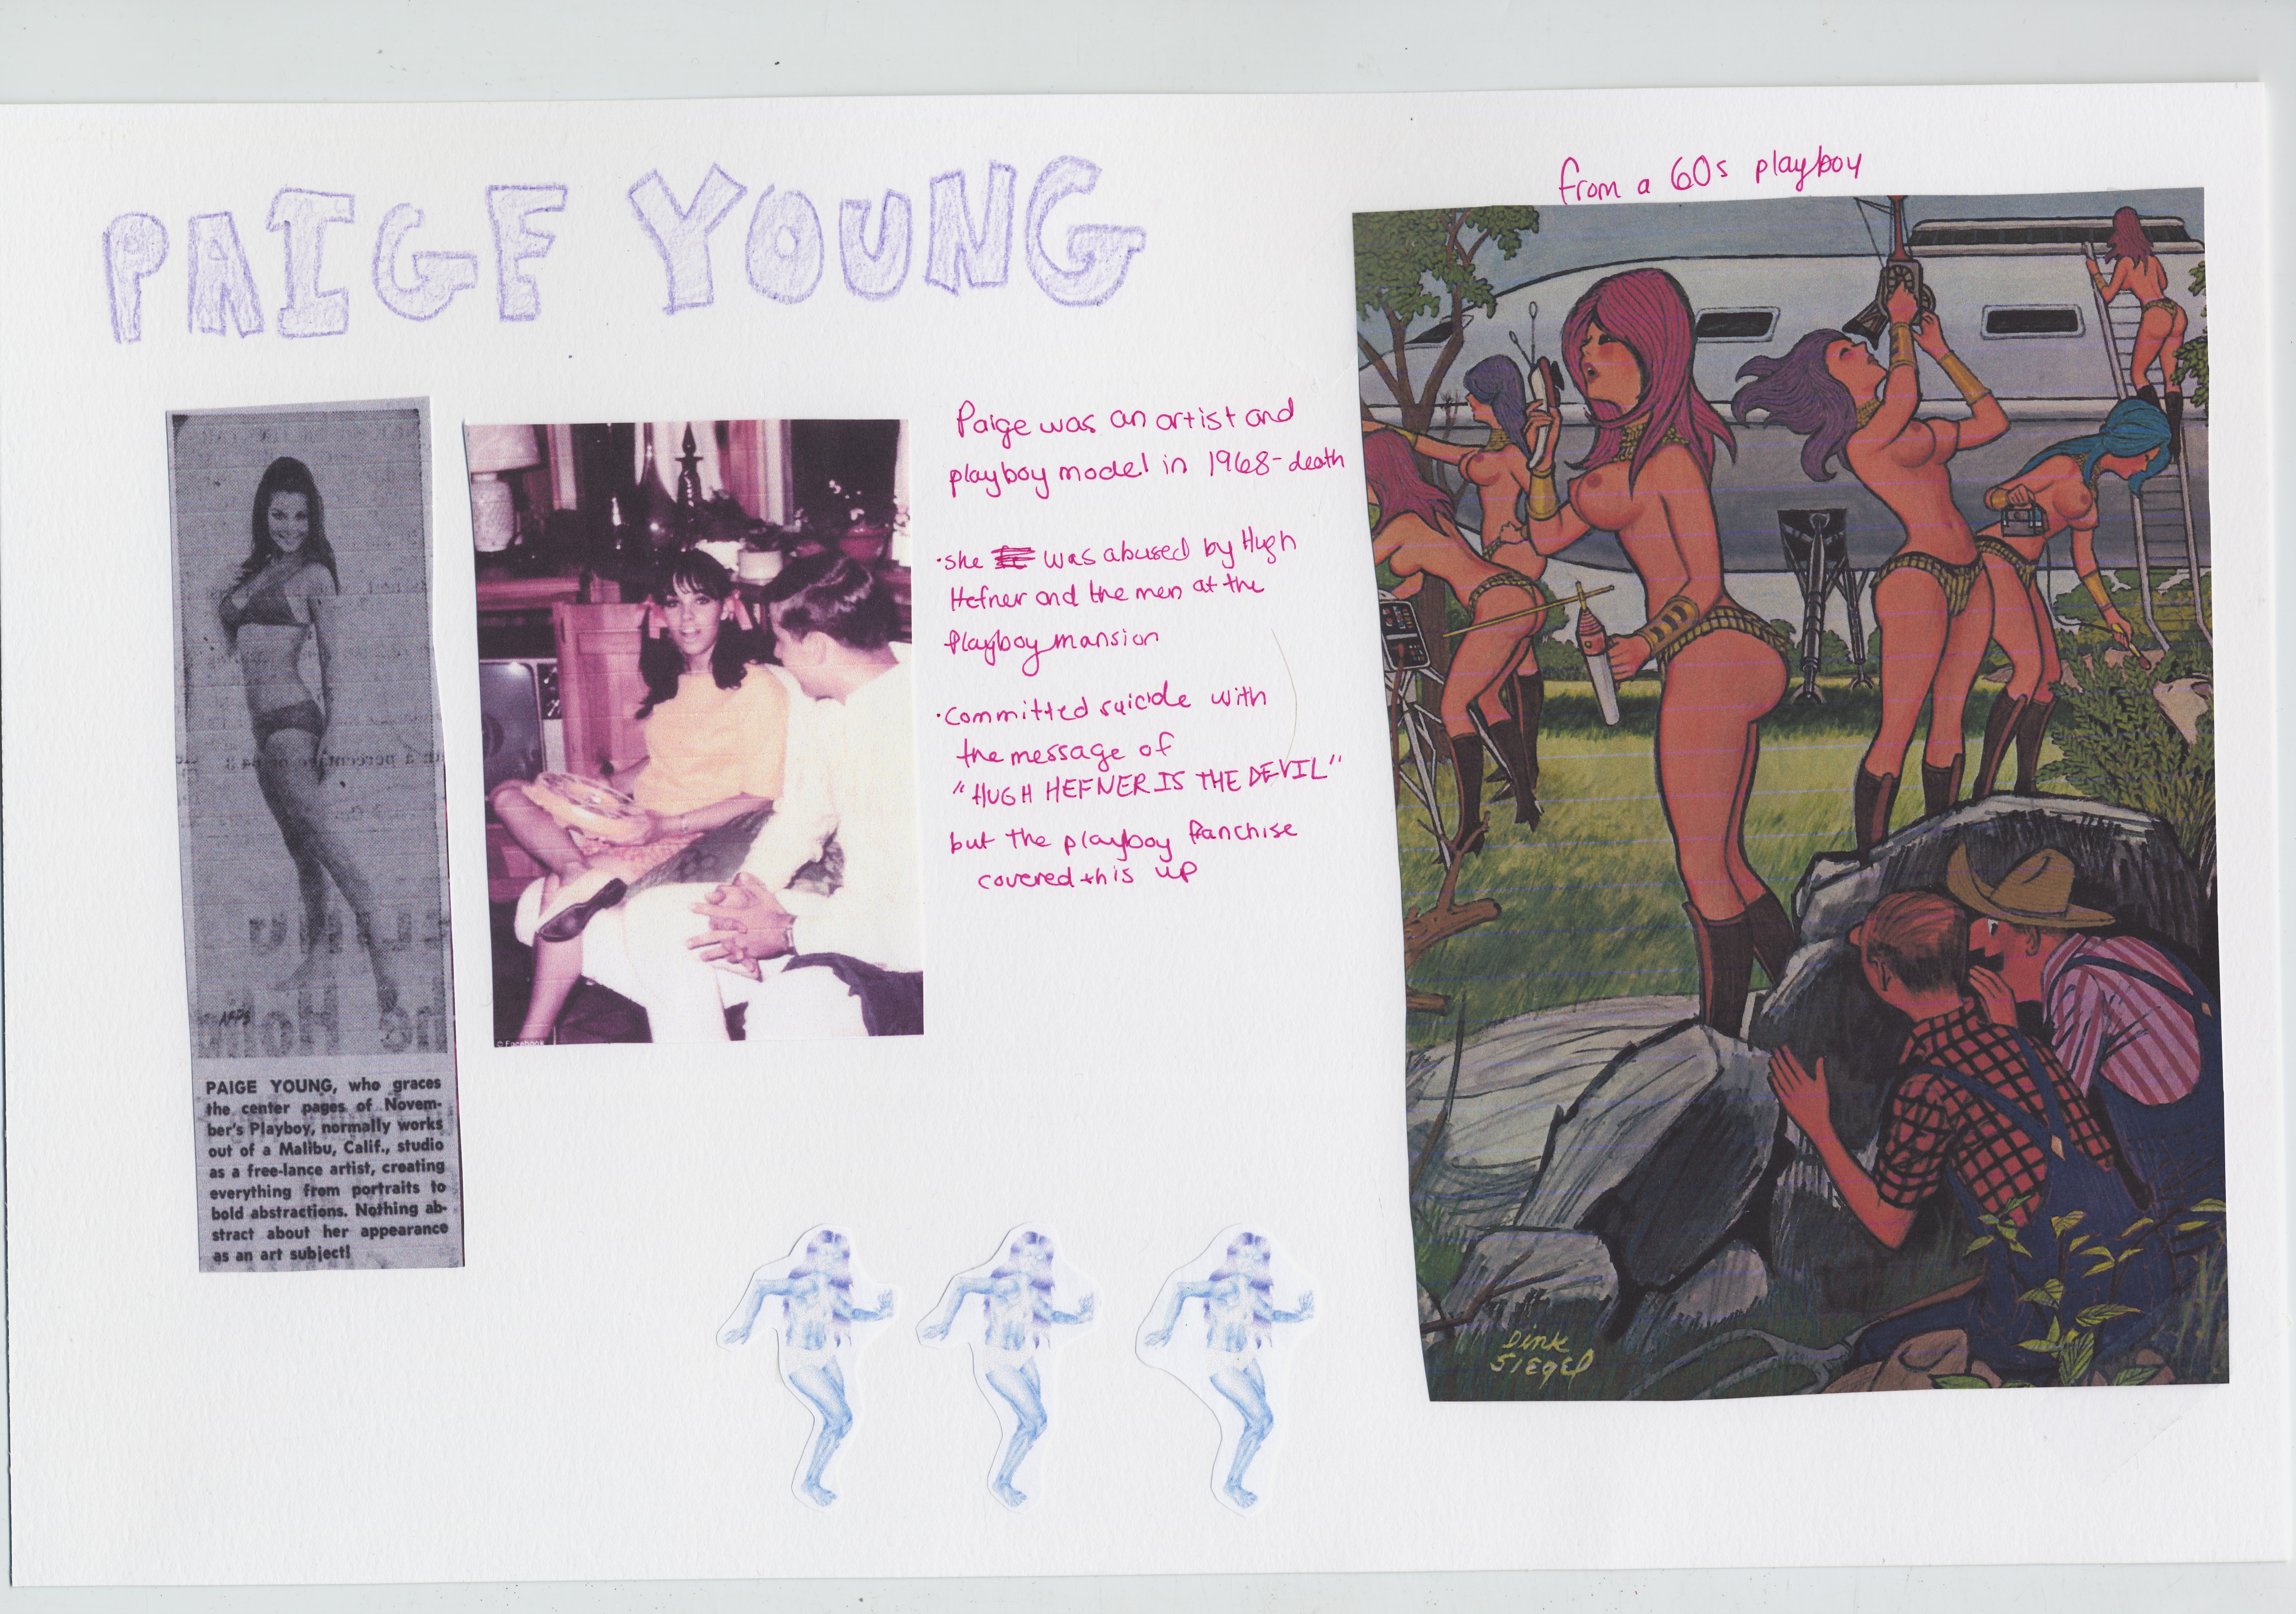 PAIGE YOUNG
from a 60s playboy
Paige was an artist and
playboy model in 1968-death
·she was abused by Hugh
Hefner and the men at the
Playboy mansion
·Committed suicide with
the message of
"HUGH HEFNER IS THE DEVIL"
but the playboy franchise
covered this up
© Facebook
PAIGE YOUNG, who graces
the center pages of Novem-
ber's Playboy, normally works
out of a Malibu, Calif., studio
as a free-lance artist, creating
everything from portraits to
bold abstractions. Nothing ab-
stract about her appearance
as an art subject!
Dink
SIEGEL